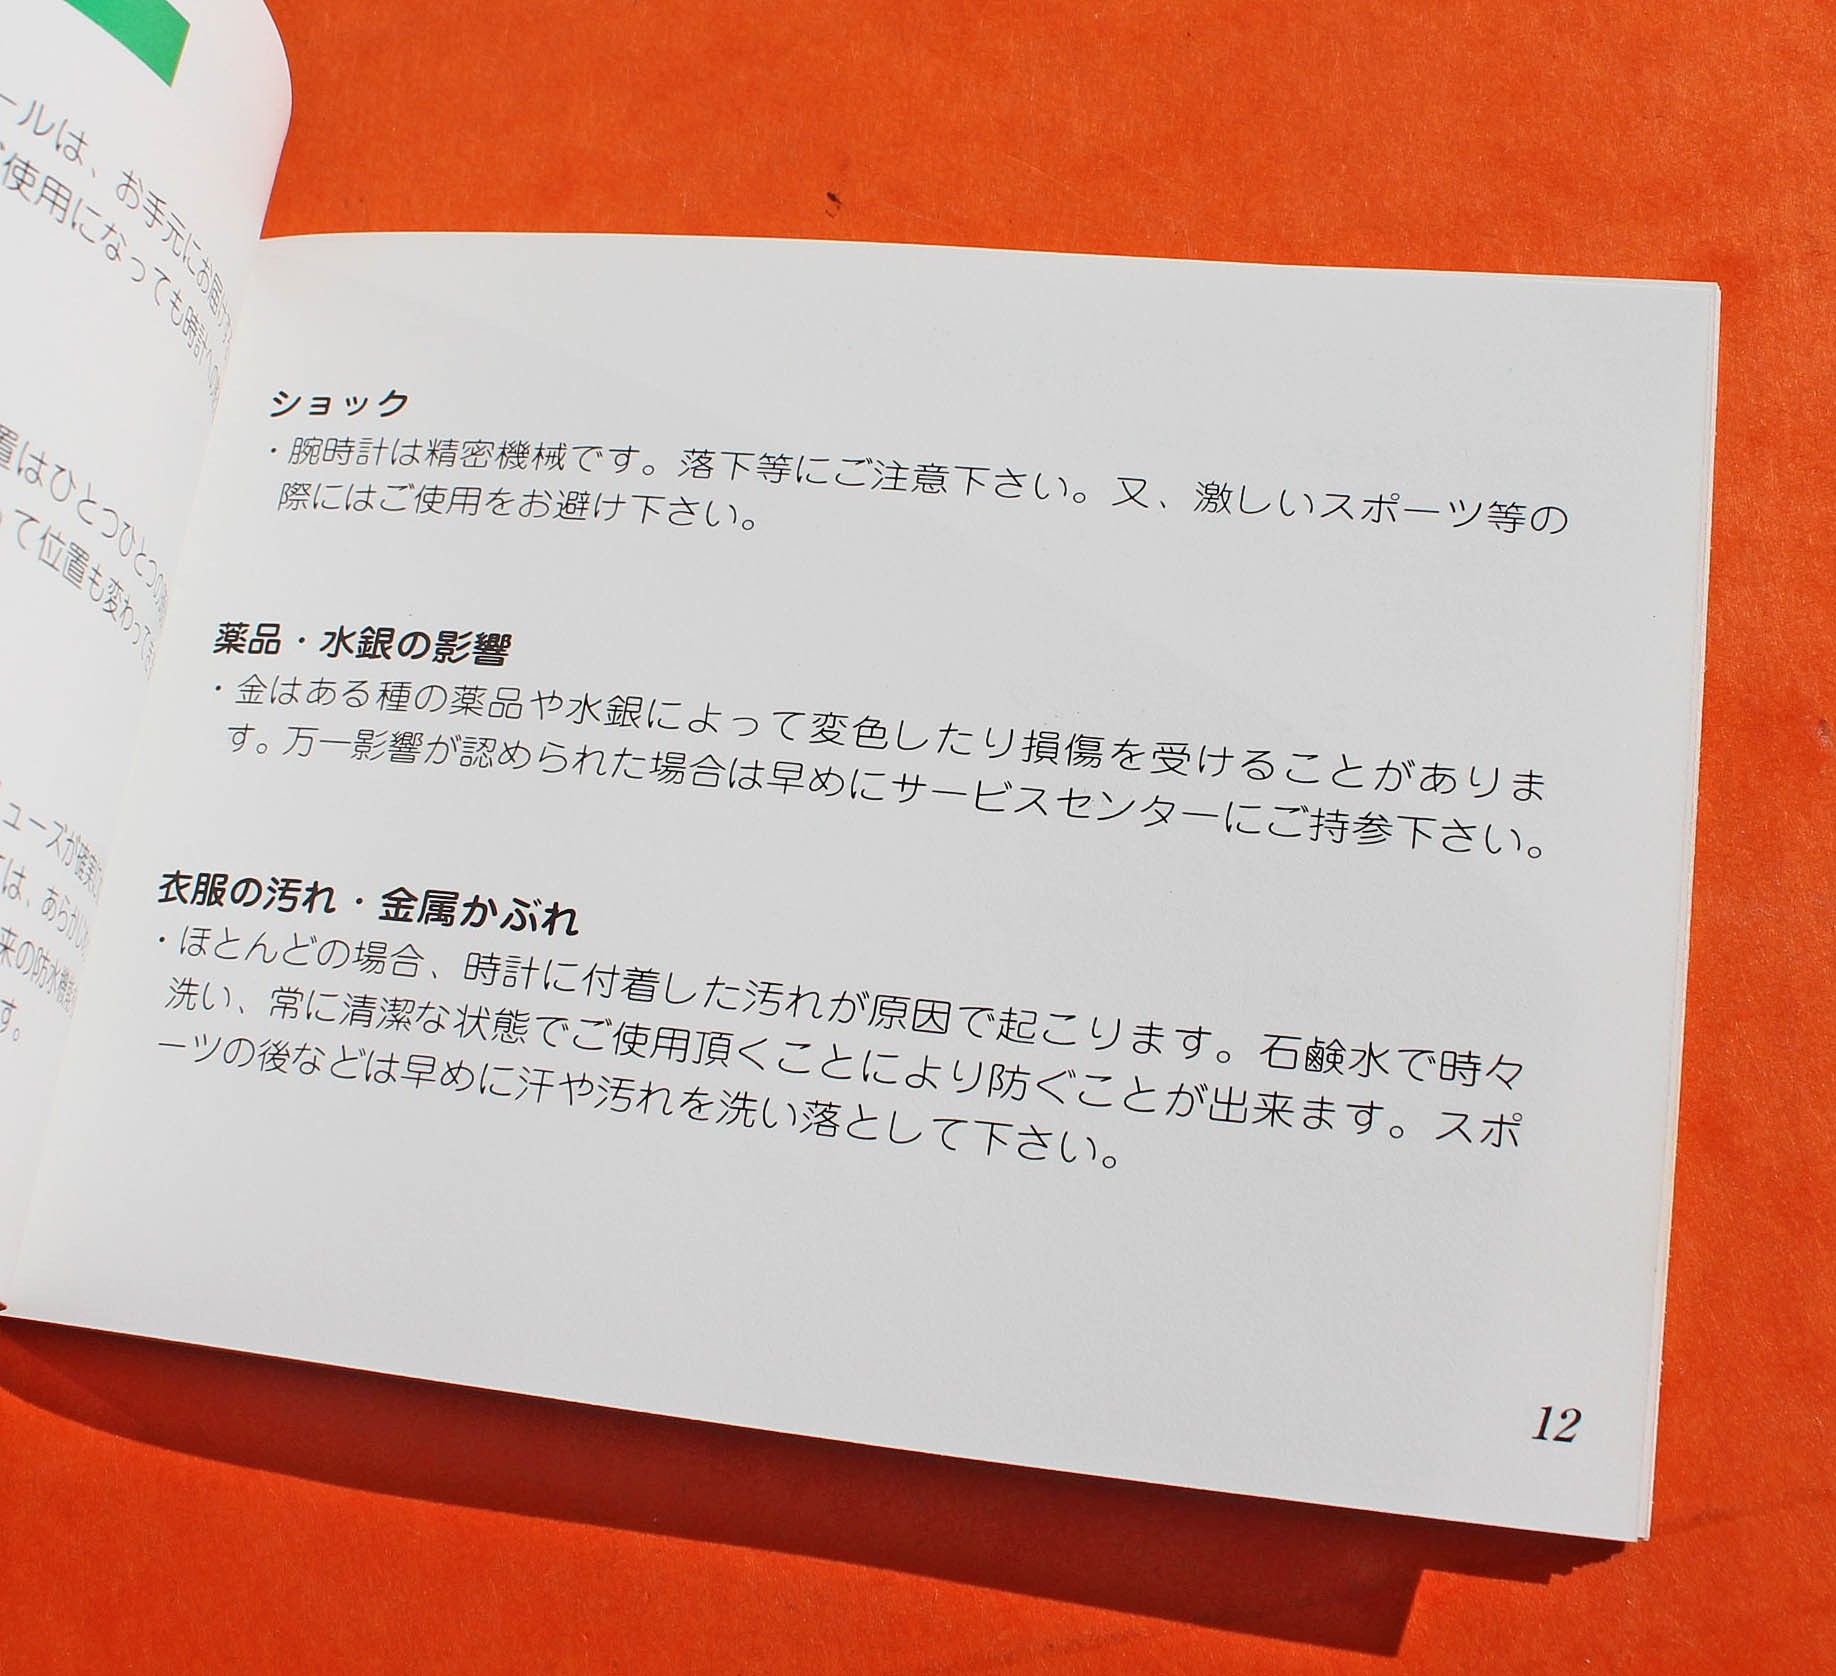 ールは、お手元にお届け
使用になっても時計への
置はひとつひとつの
って位置も変わってき
ューズが確実に
は、あらかじめ
来の防水機能
す。
ショック
・腕時計は精密機械です。落下等にご注意下さい。又、激しいスポーツ等の
際にはご使用をお避け下さい。
薬品・水銀の影響
・金はある種の薬品や水銀によって変色したり損傷を受けることがありま
す。万一影響が認められた場合は早めにサービスセンターにご持参下さい。
衣服の汚れ・金属かぶれ
・ほとんどの場合、時計に付着した汚れが原因で起こります。石鹸水で時々
洗い、常に清潔な状態でご使用頂くことにより防ぐことが出来ます。スポ
ーツの後などは早めに汗や汚れを洗い落として下さい。
12